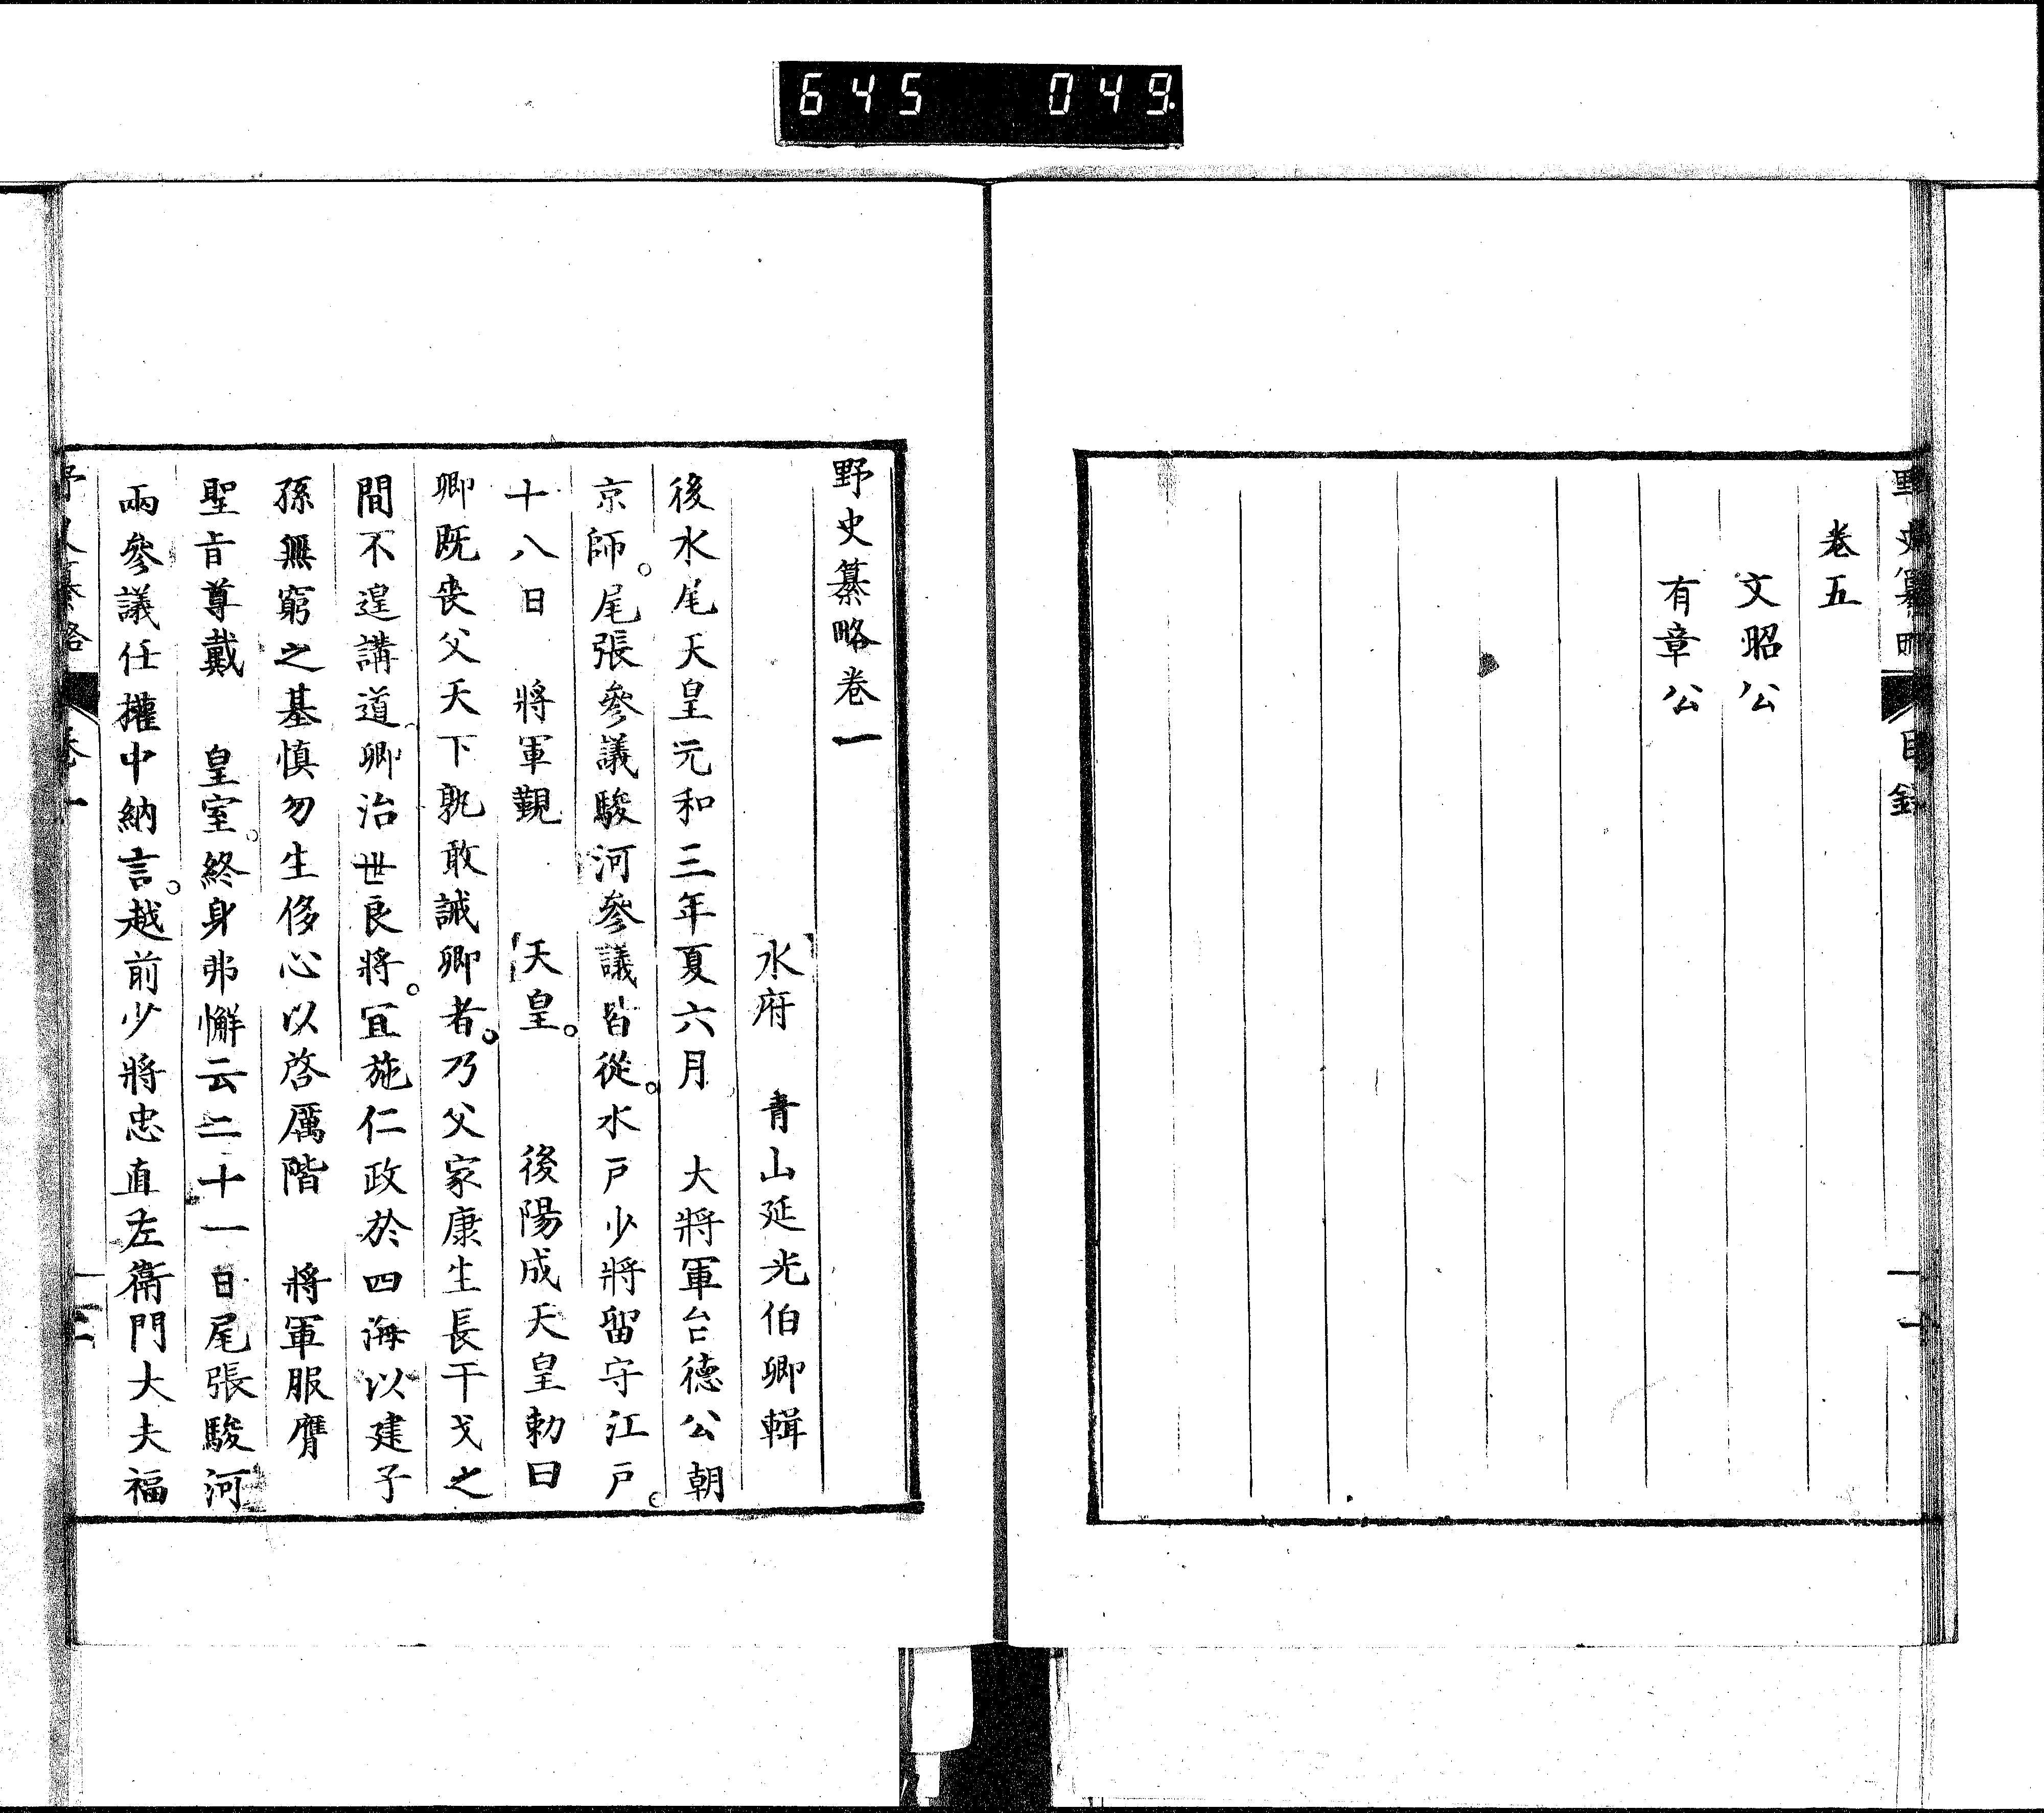 645 049.
野史纂略 目録 一
卷五
文昭公
有章公
野史纂略卷一
水府 青山延光伯卿輯
後水尾天皇元和三年夏六月 大將軍台德公朝
京師。尾張參議駿河參議皆從。水戸少將留守江戸。
十八日 將軍覲 天皇。 後陽成天皇勅曰
卿既喪父天下孰敢誡卿者。乃父家康生長干戈之
間不遑講道卿治世良將。宜施仁政於四海以建子
孫無窮之基慎勿生侈心以啓厲階 將軍服膺
聖旨尊戴 皇室。終身弗懈云二十一日尾張駿河
兩參議任權中納言。越前少將忠直左衞門大夫福